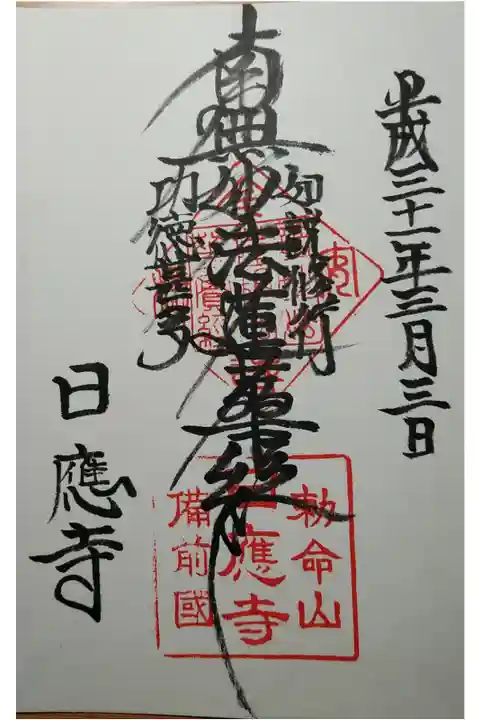 平成三十一年三月三日
如説修行
南無妙法蓮華經
功徳甚多
日應寺
勅命山
日應寺
備前國